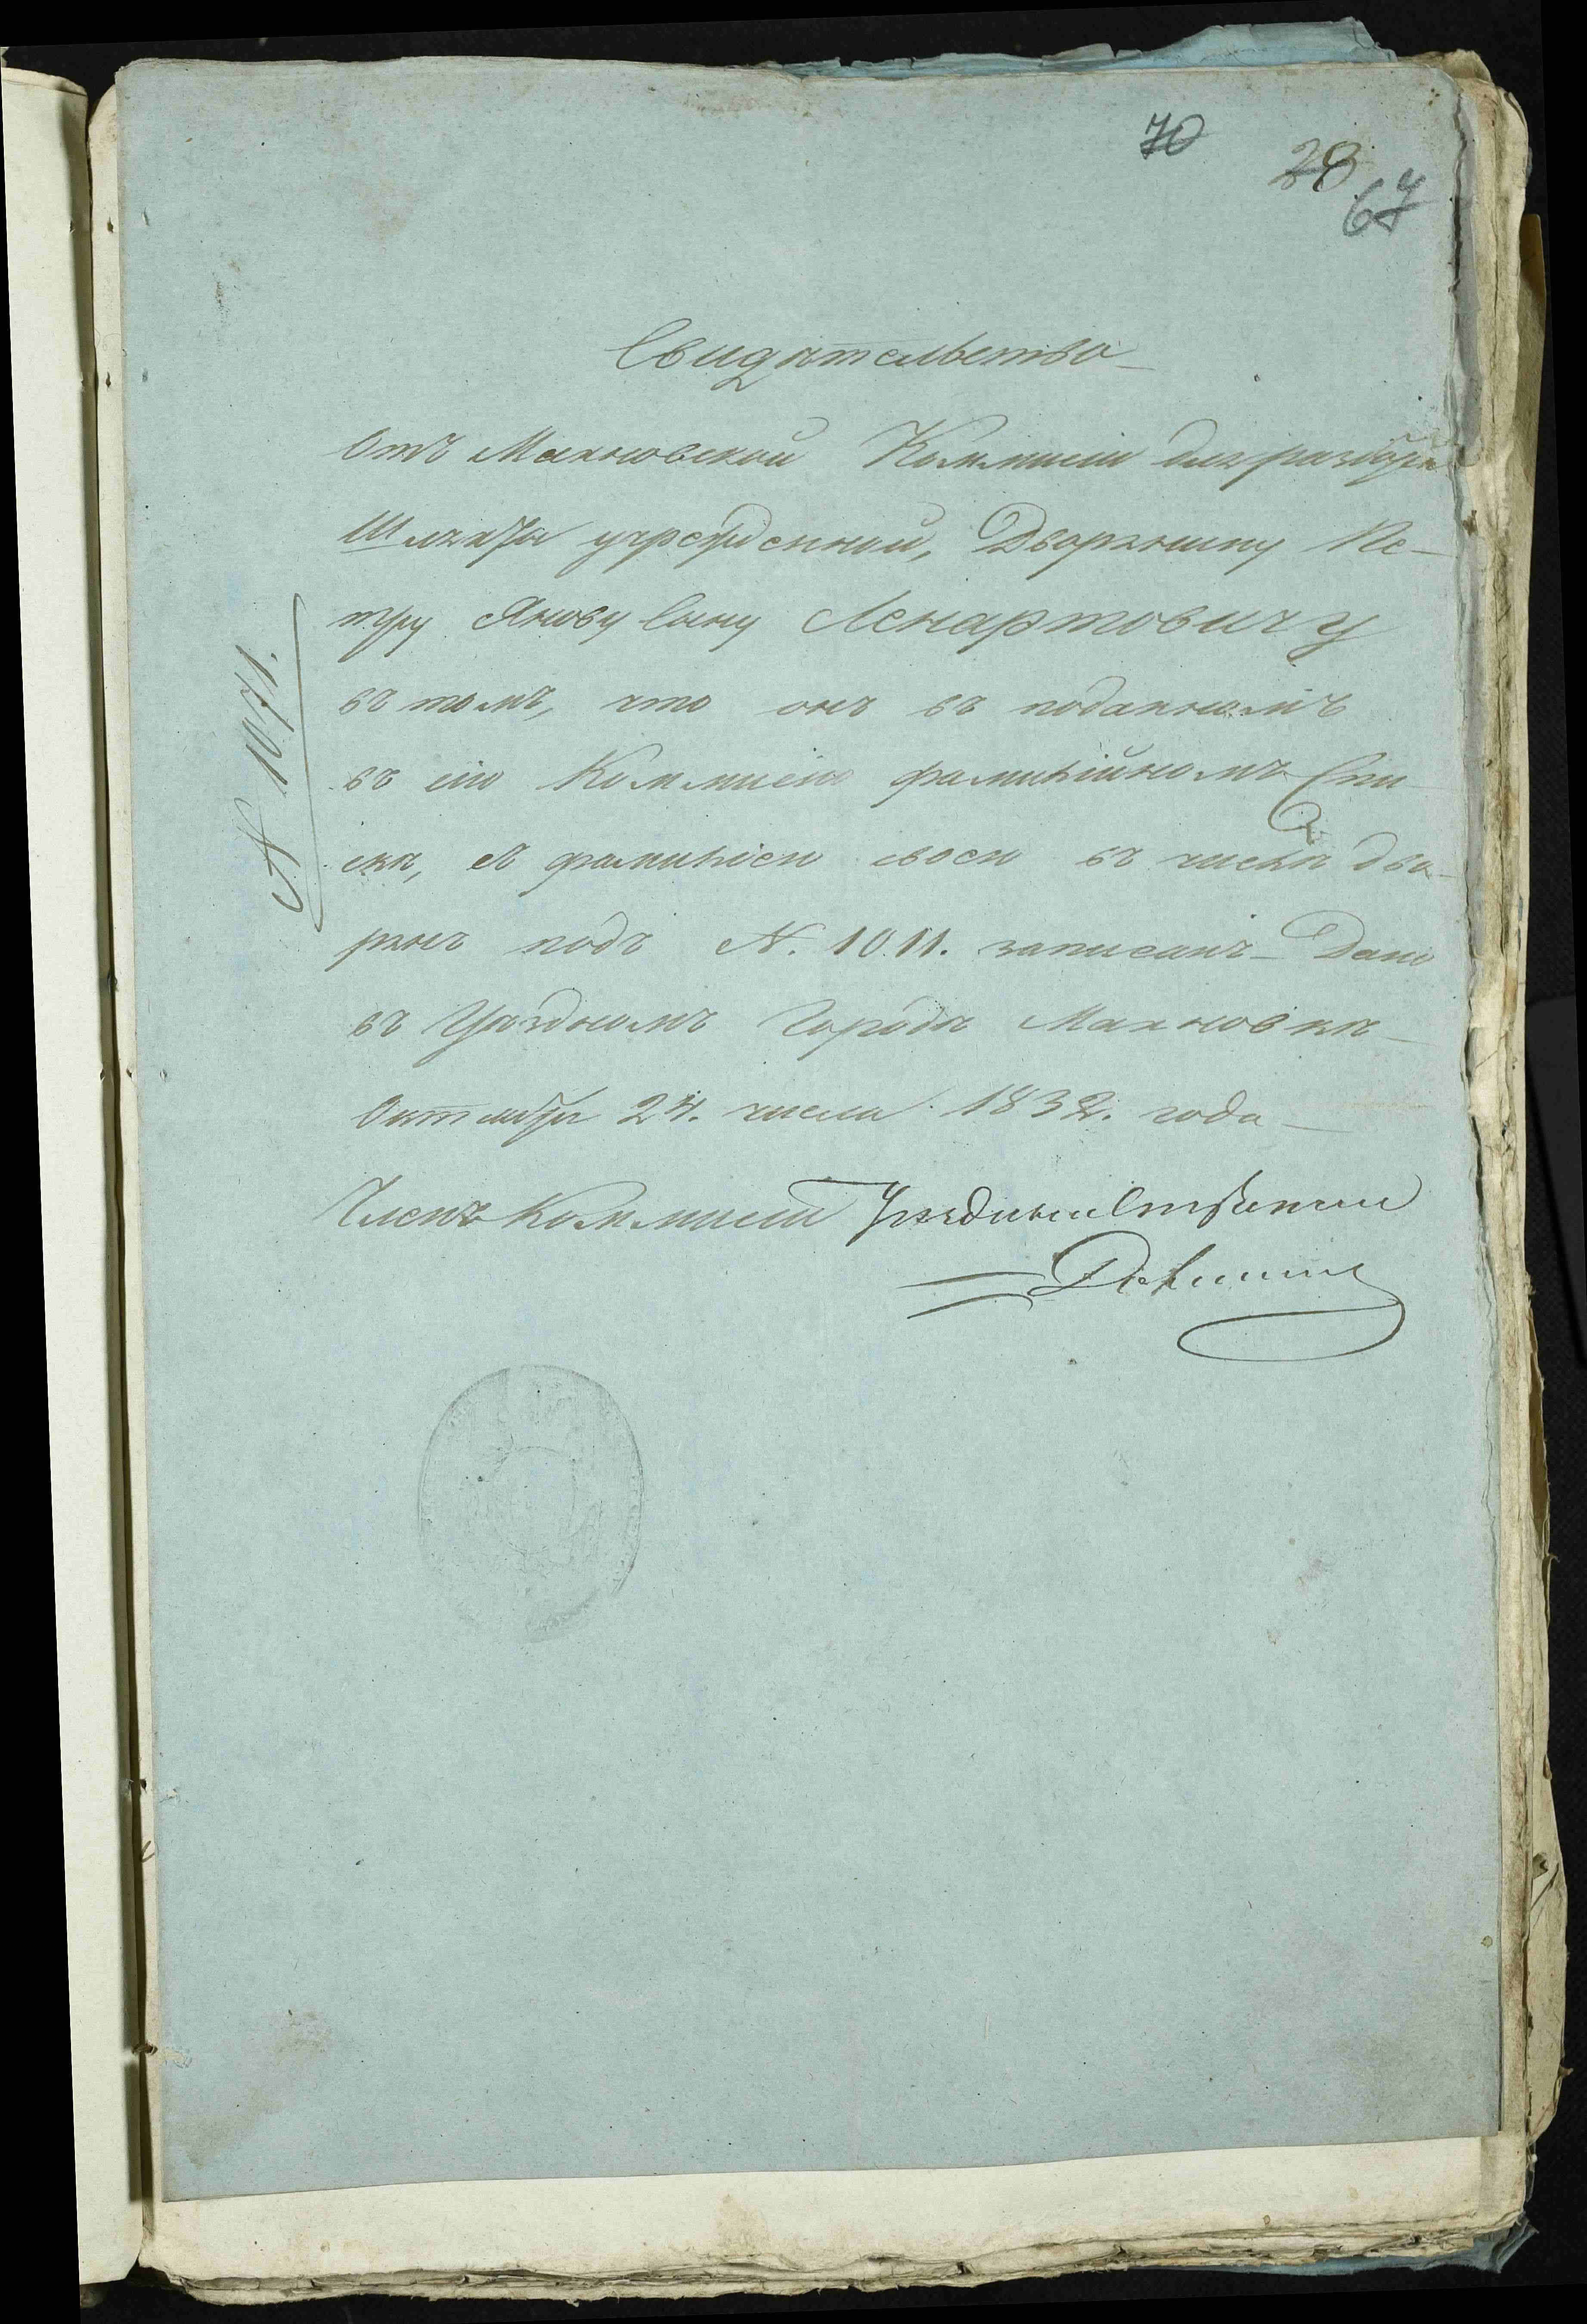 70
28
67
Свидѣтельство
Отъ Махновской Коммисіи для разбора
Шляхты учрежденной, Дворянину Пе-
тру Якову Сыну Ленартовичу
въ томъ, что онъ въ поданномъ
въ сію Коммисію фамилійномъ Спи-
скѣ, съ фамиліею своею въ числѣ дво-
рянъ подъ N. 1011. записанъ - Дано
въ Уѣздномъ Городѣ Махновкѣ
Октября 24. числа 1832. года
Членъ Коммисіи Уѣздный Стряпчій
N 1071.